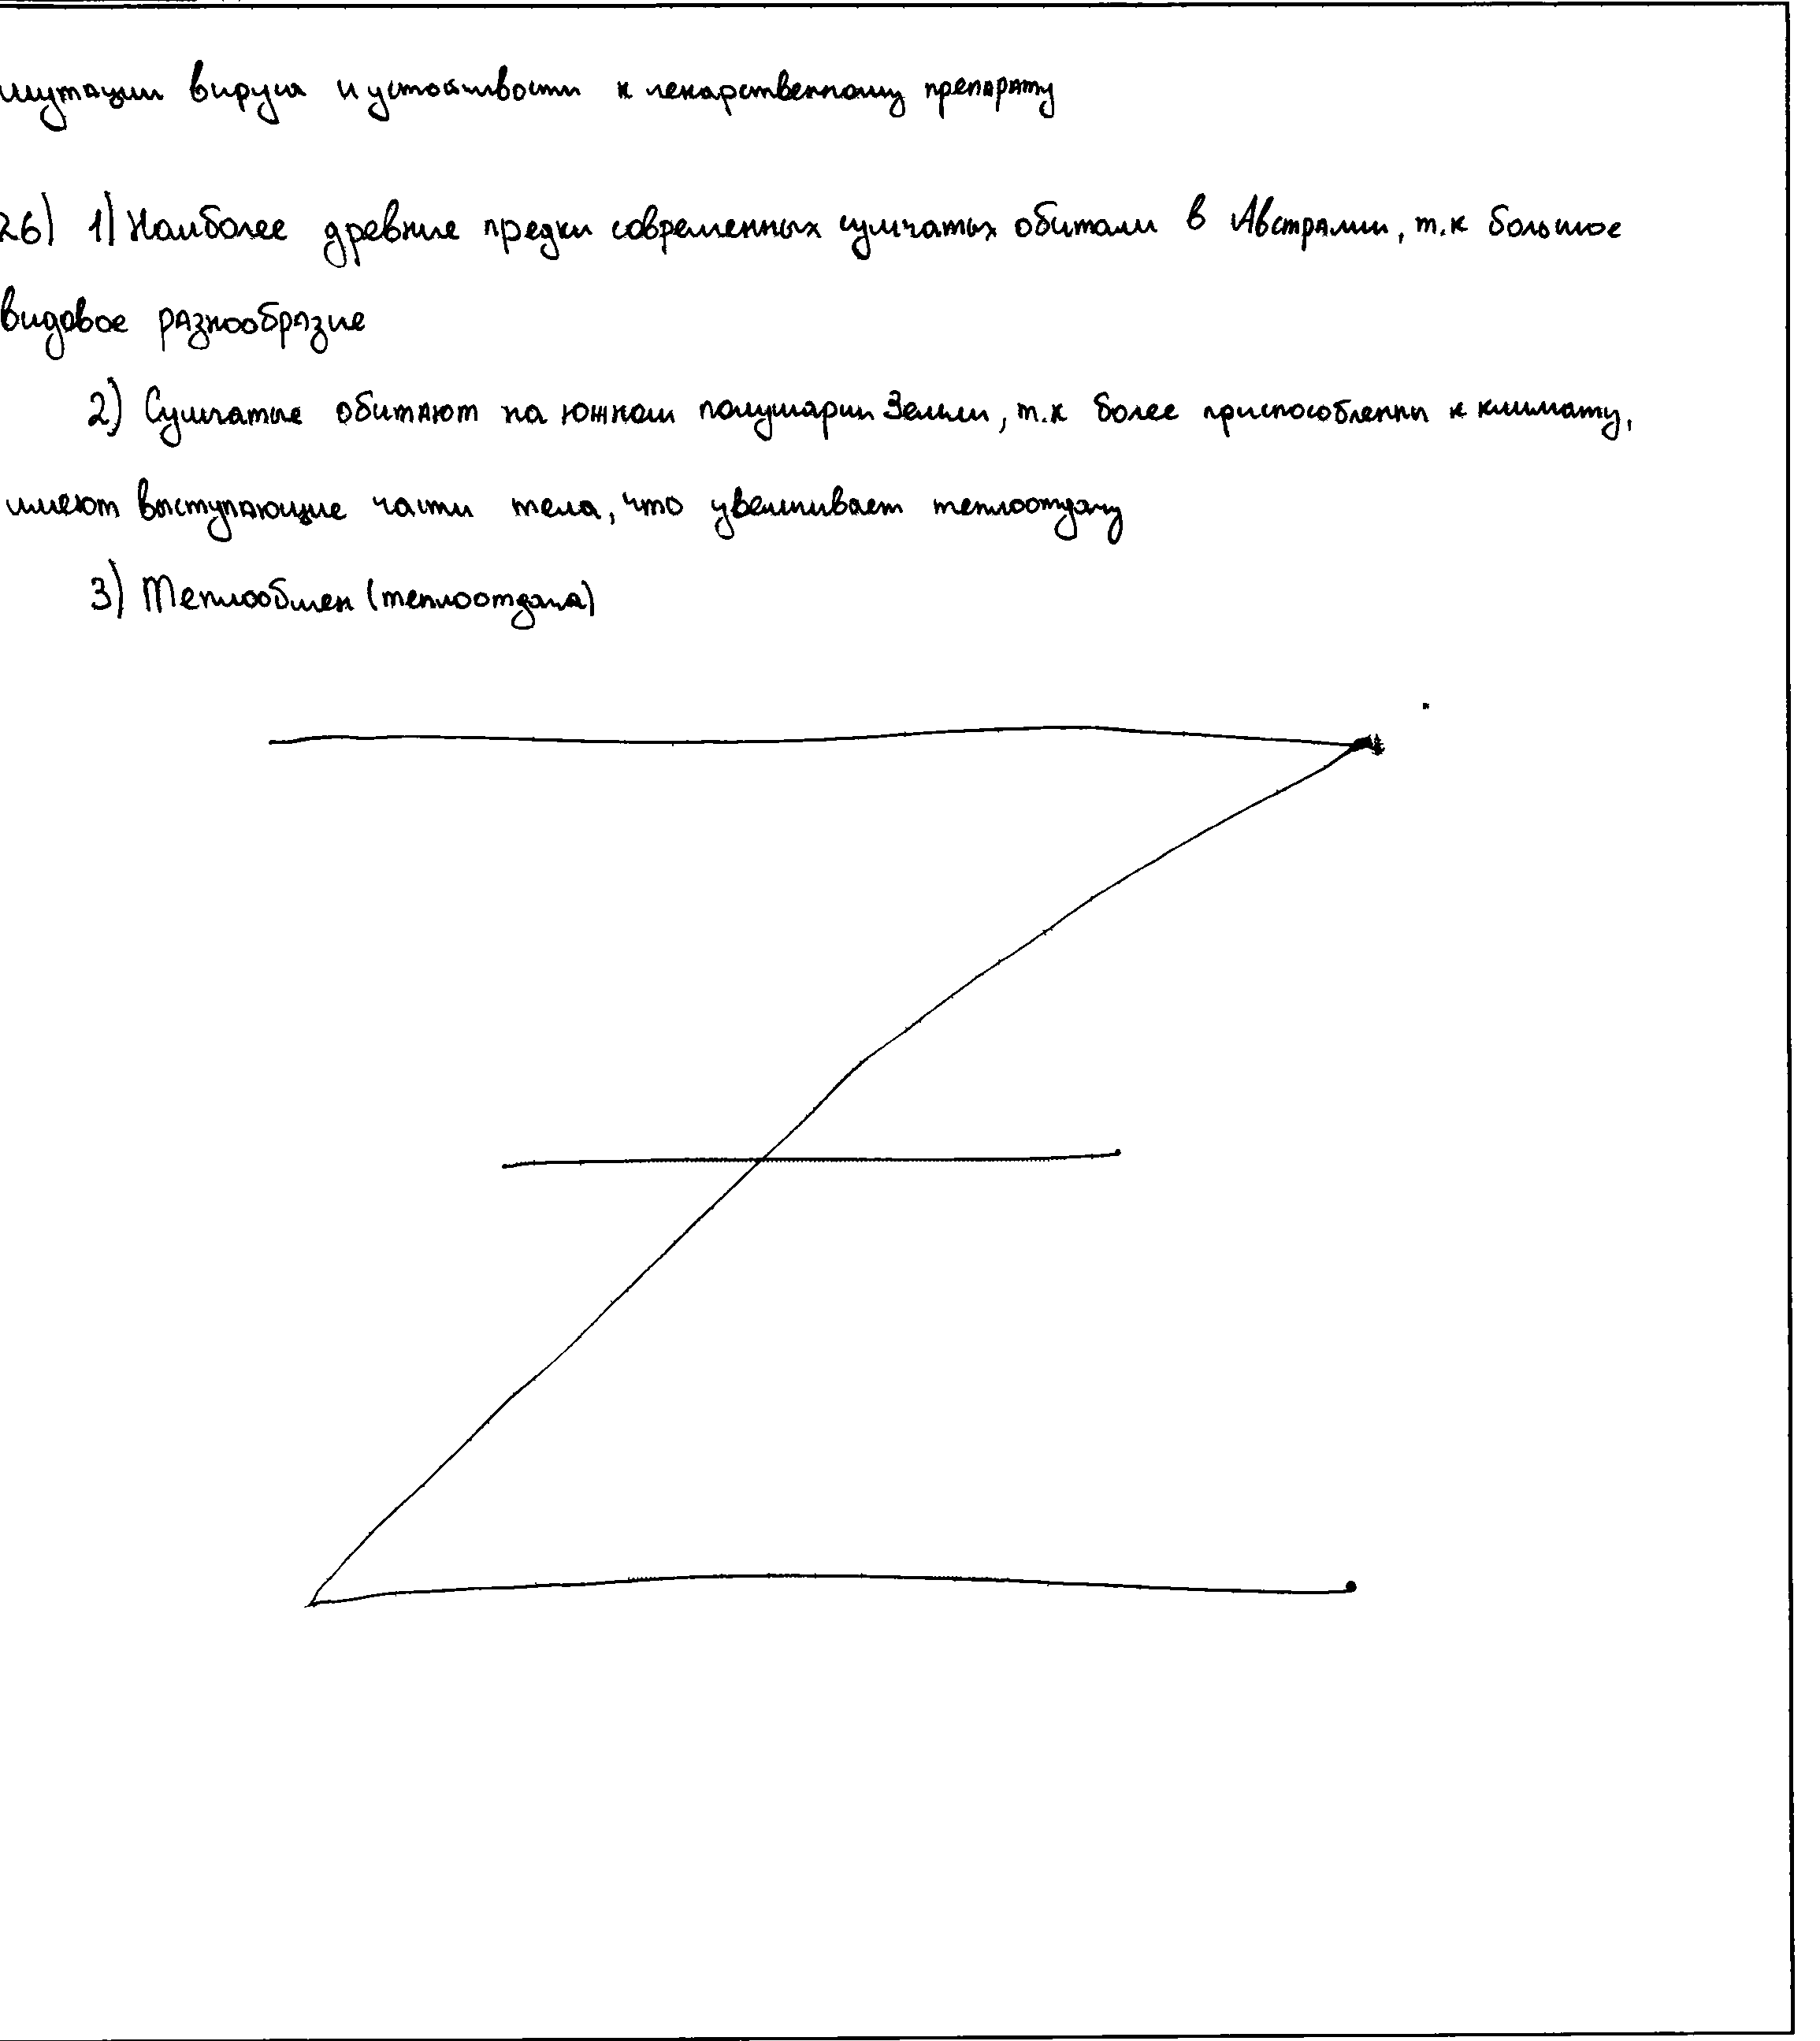 мутации вируса и устойчивости к лекарственному препарату
26) 1) Наиболее древние предки современных сумчатых обитали в Австралии, т.к большое
видовое разнообразие
2) Сумчатые обитают на южном полушарии Земли, т.к более приспособлены к климату,
имеют выступающие части тела, что увеличивает теплоотдачу
3) Теплообмен (теплоотдача)